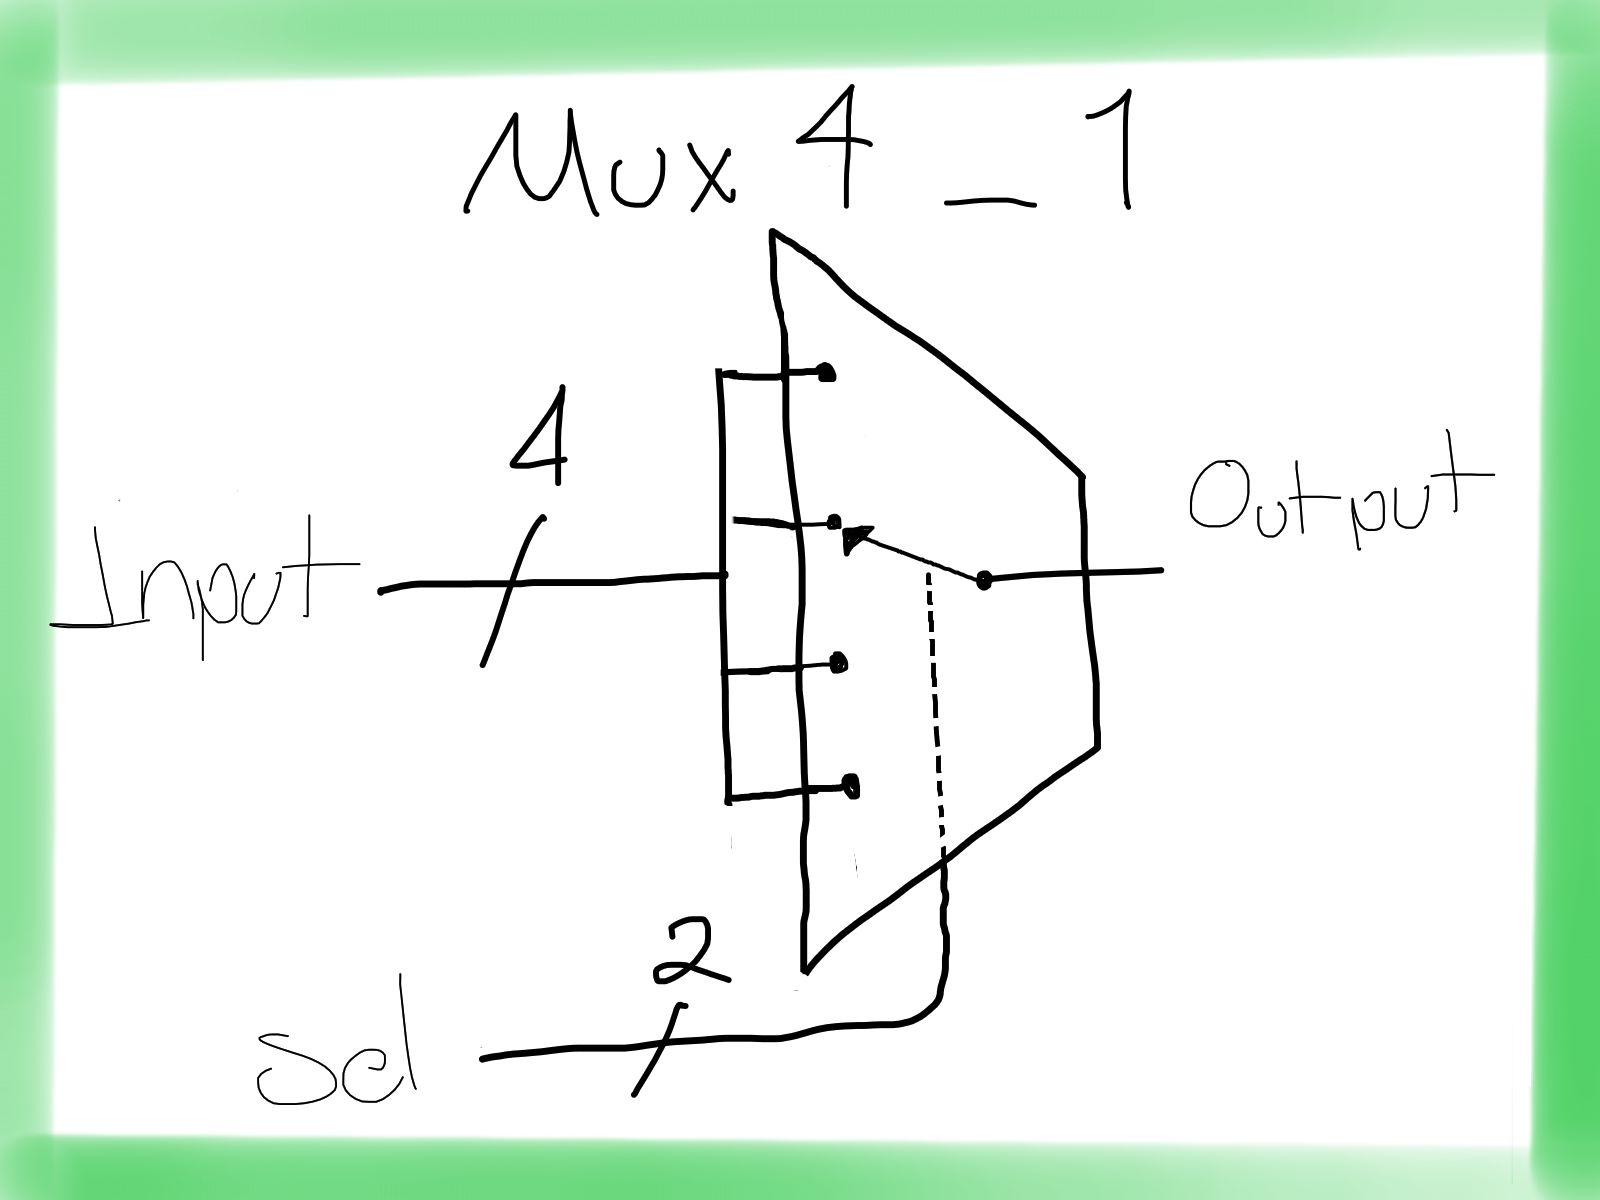 Mux 4_1
4
Input
Output
2
Sel